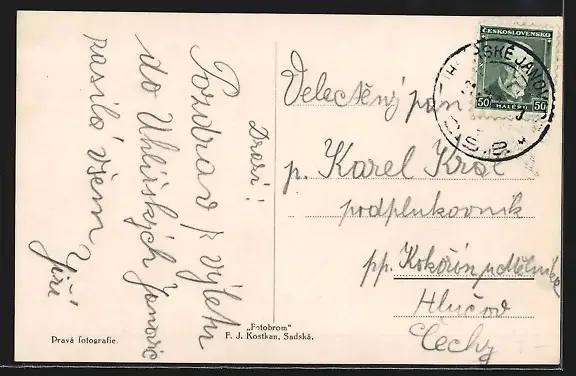 Drazí!
Pozdrav z výletu
do Uhlířských Janovic
zasílá všem
Jiří
Pravá fotografie.
„Fotobrom"
F. J. Kostkan, Sadská.
ČESKOSLOVENSKO
50 HALÉŘŮ 50
UHLÍŘSKÉ JANOVICE
Velectěný pan
p. Karel Král
podplukovník
pp. Kokořín u
Čechy